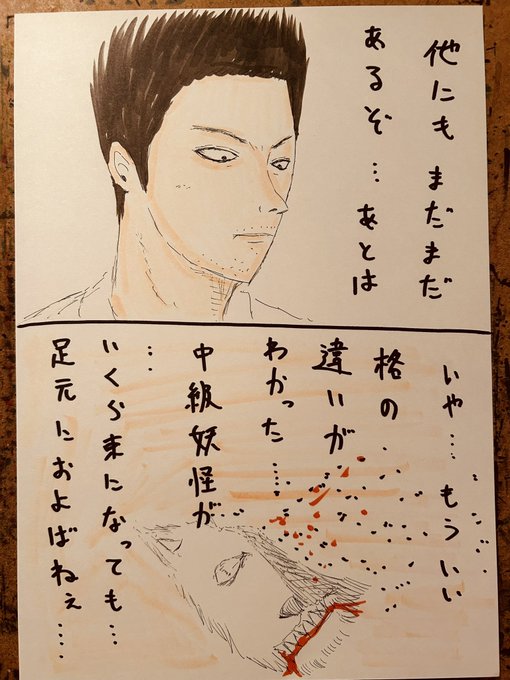 他にもまだまだ
あるぞ…あとは
いや…もういい
格の
違いが
わかった……
中級妖怪が
…
いくら束になっても…
足元におよばねぇ…